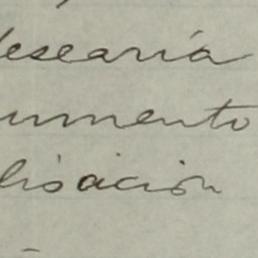 desearía
umento
lisación